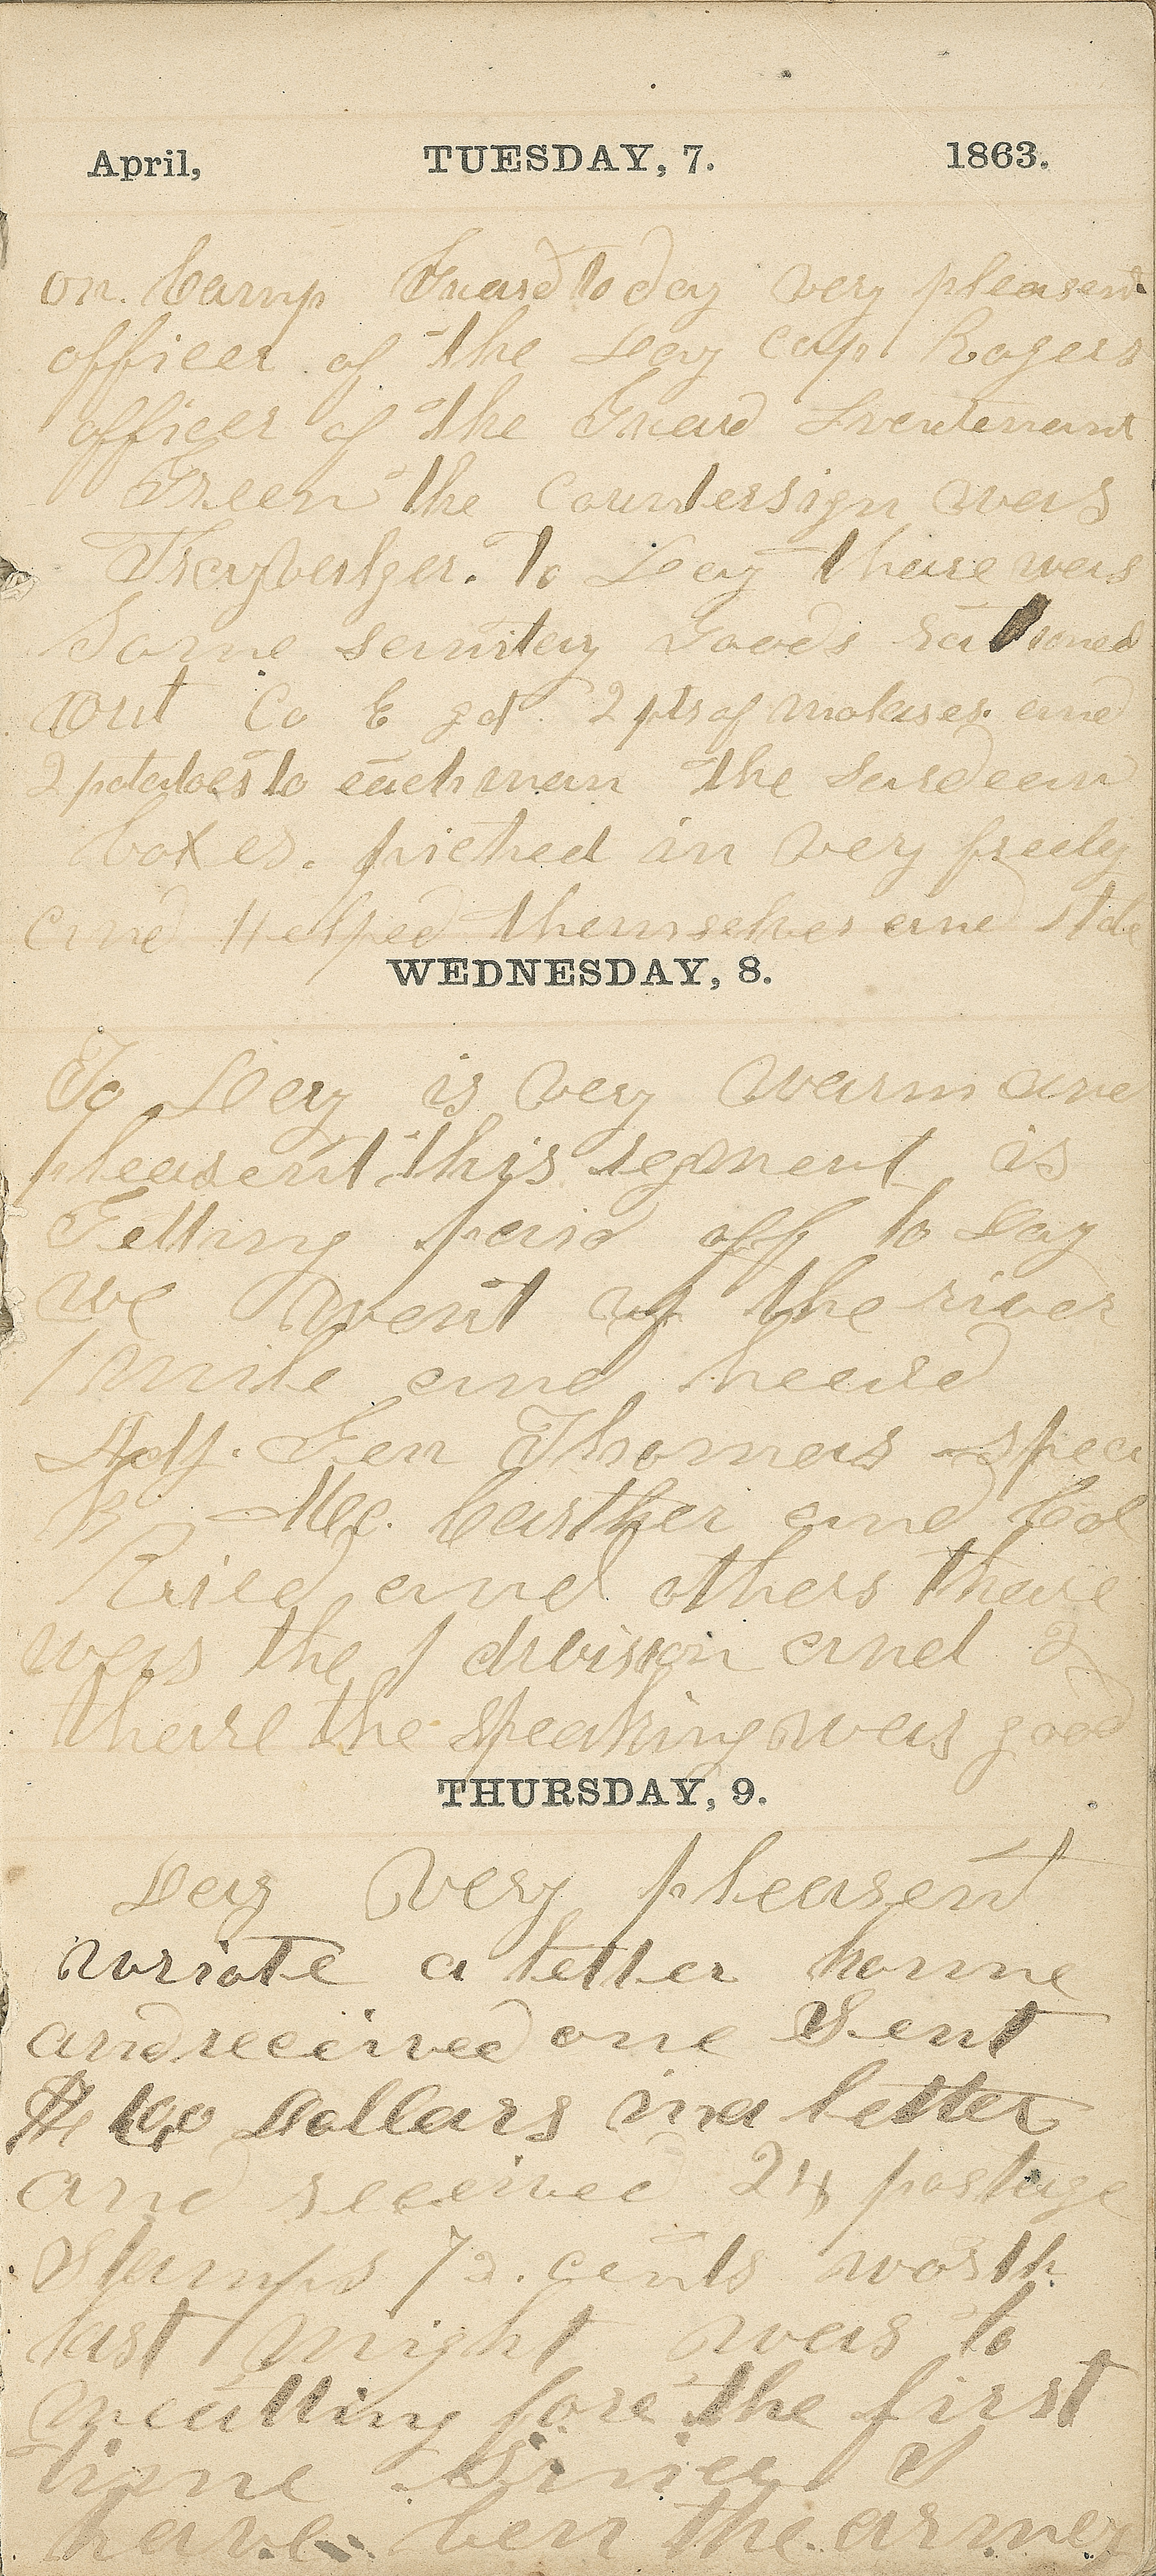 April, TUESDAY, 7. 1863.
on. Camp Guard to day very pleasent
officer of the Day Cap Rogers
officer of the Guard Lieutenant
Green the Countersign was
To Day thare was
Some sanitary Goods rationed
out Co E got 2 pts of molases. and
2 potatoes to each man the Sardean
boxes. pitched in very freely
and Helped themselves and stole
WEDNESDAY, 8.
To Day is very warm and
pleasent this regment is
Getting paid off to Day
we went up the river
1 mile and heard
Adj. Gen Thomas spea
k Mc. Carther and Col
Ried and others thare
was the 1 division and 2
thare the speaking was good
THURSDAY, 9.
Day very pleasent
wriote a letter home
and received one Sent
Dollars in a letter
and received 24 postage
Stamps 72. cents worth
last night was to
meatting fore the first
time Sinice I
have ben the armey